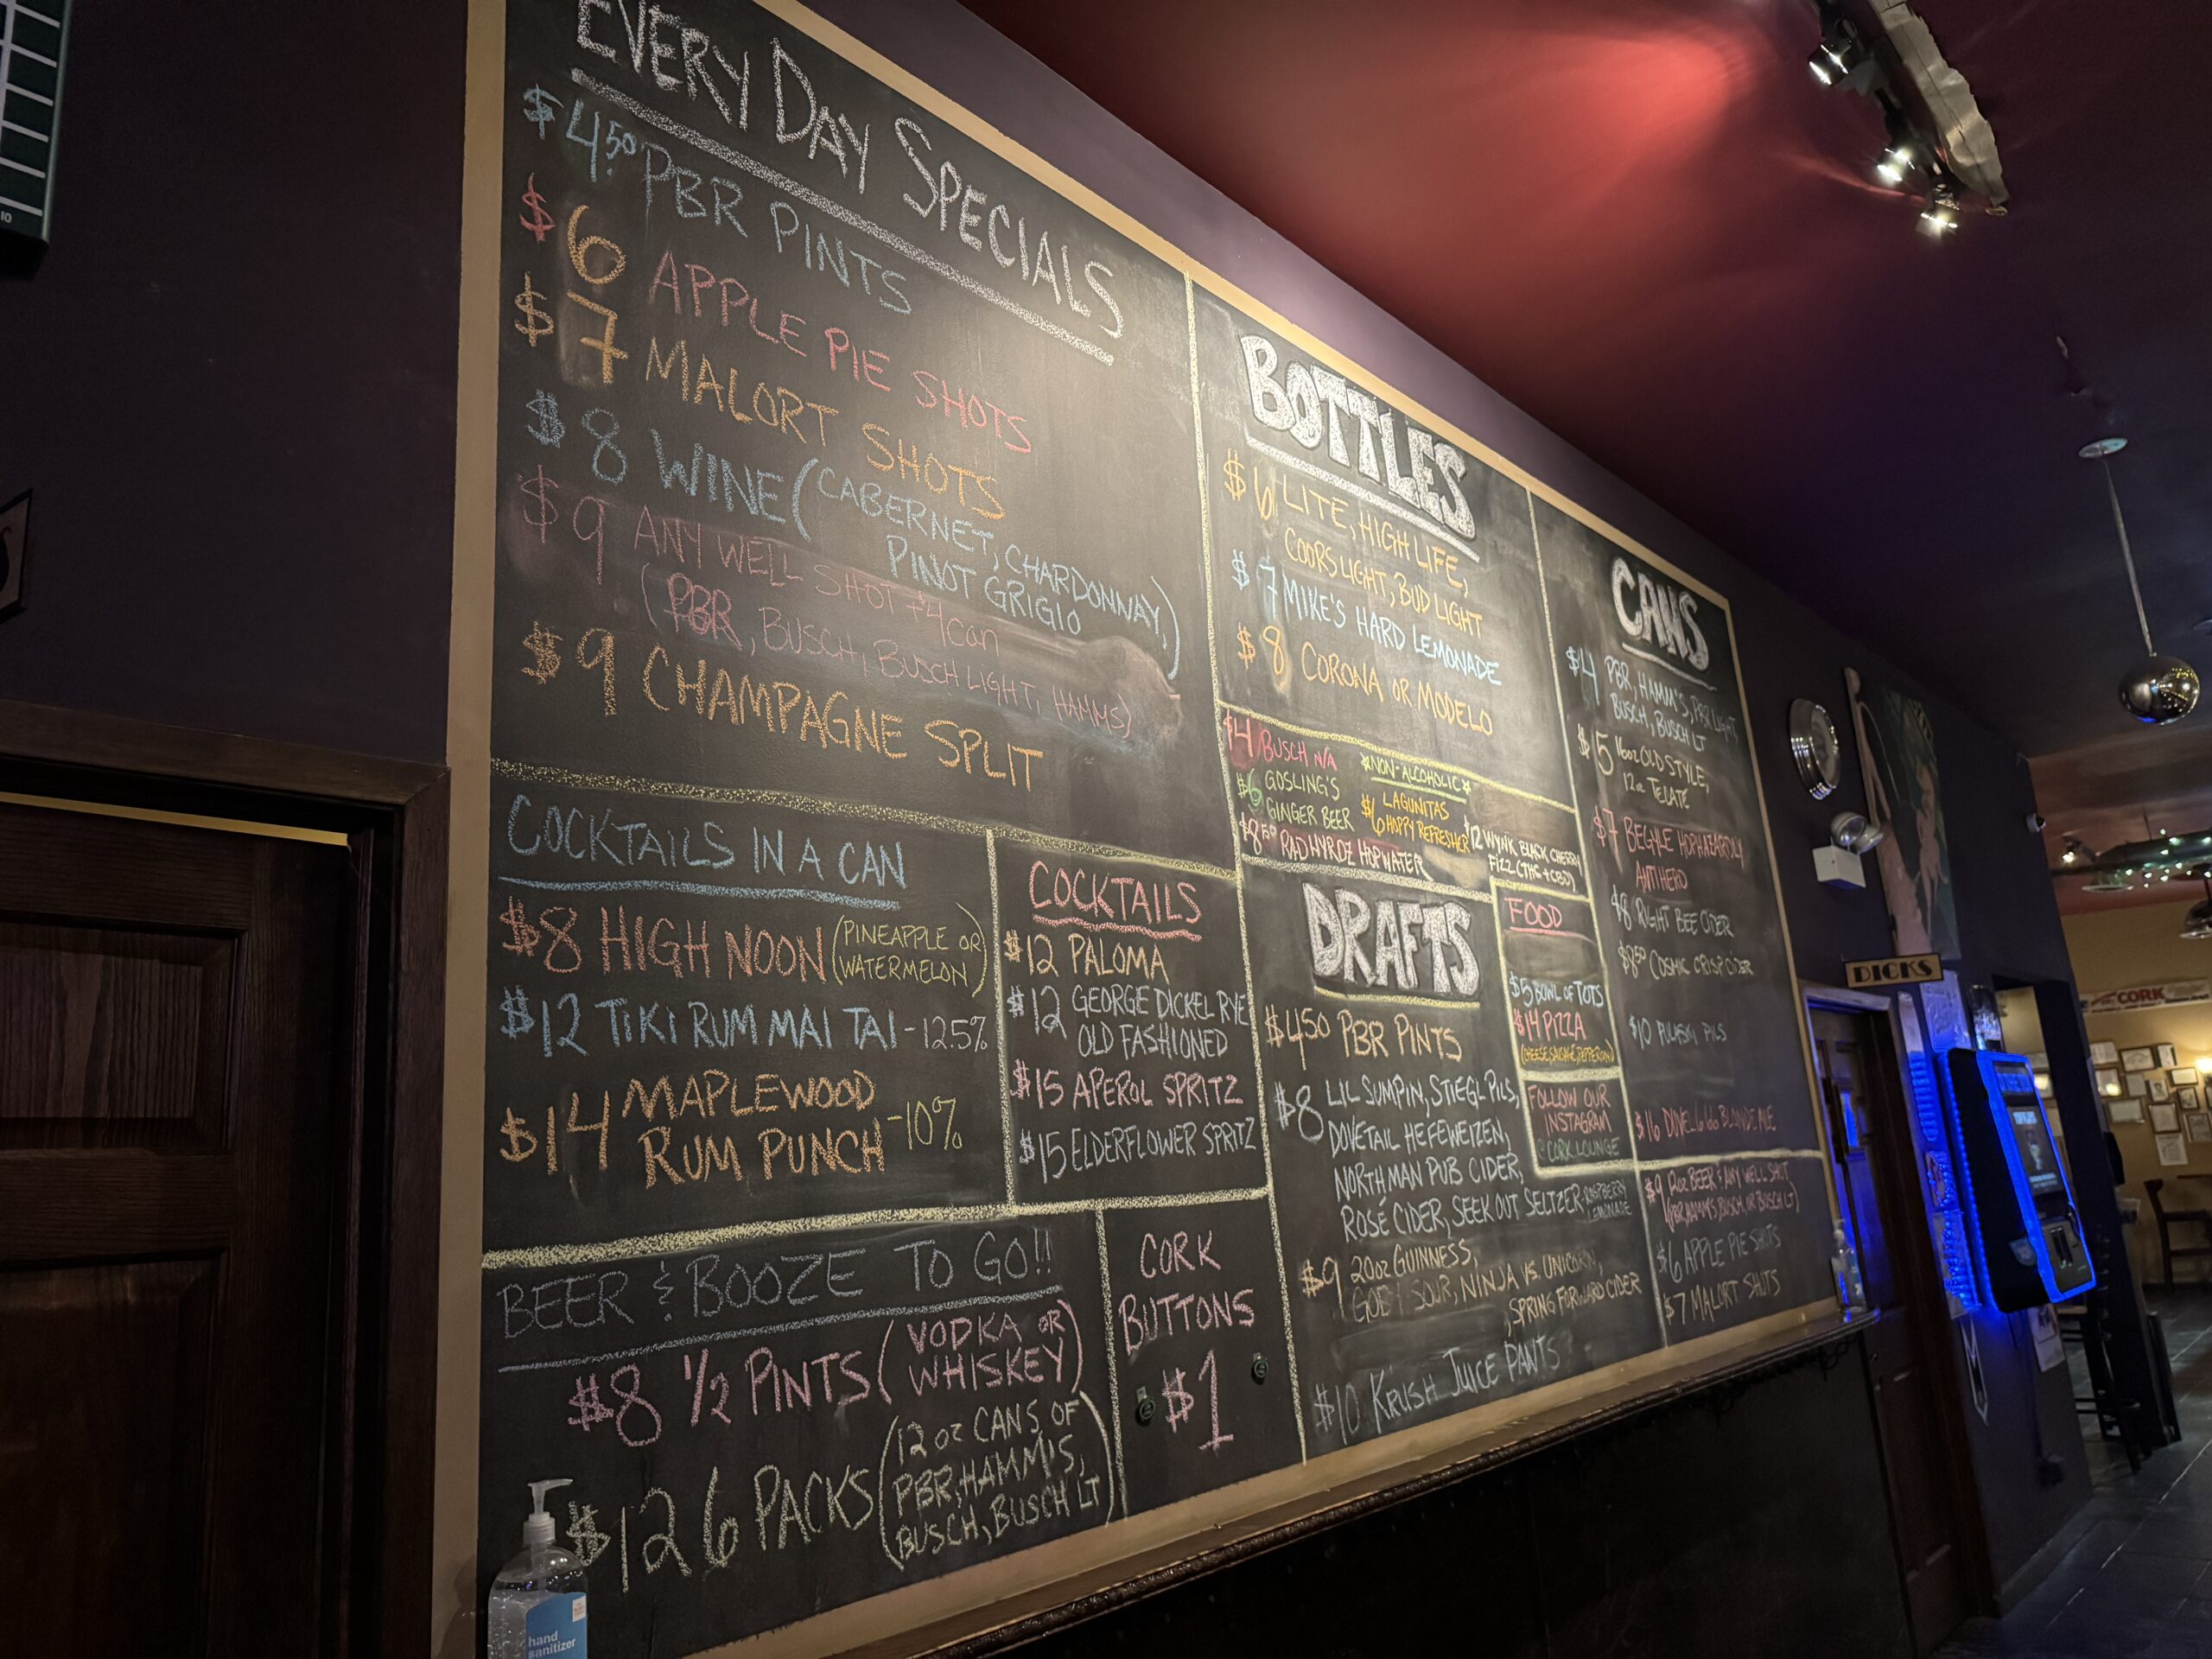 EVERY DAY SPECIALS
$4.50 PBR PINTS
$6 APPLE PIE SHOTS
$7 MALORT SHOTS
$8 WINE (CABERNET, CHARDONNAY,
PINOT GRIGIO)
$9 ANY WELL SHOT + $4 can
(PBR, BUSCH, BUSCH LIGHT, HAMMS)
$9 CHAMPAGNE SPLIT
COCKTAILS IN A CAN
$8 HIGH NOON (PINEAPPLE OR
WATERMELON)
$12 TIKI RUM MAI TAI - 12.5%
$14 MAPLEWOOD
RUM PUNCH - 10%
COCKTAILS
$12 PALOMA
$12 GEORGE DICKEL RYE
OLD FASHIONED
$15 APEROL SPRITZ
$15 ELDERFLOWER SPRITZ
BEER & BOOZE TO GO!!
$8 1/2 PINTS (VODKA OR
WHISKEY)
$12 6 PACKS (12 oz CANS OF
PBR, HAMM'S,
BUSCH, BUSCH LT)
CORK
BUTTONS
$1
BOTTLES
$6 LITE, HIGH LIFE,
COORS LIGHT, BUD LIGHT
$7 MIKE'S HARD LEMONADE
$8 CORONA OR MODELO
$4 BUSCH N/A
*NON-ALCOHOLIC*
$6 GOSLING'S
GINGER BEER
$6 LAGUNITAS
HOPPY REFRESHER
$8.50 RAD HYRDZ HOPWATER
$12 WYNK BLACK CHERRY
FIZZ (THC + CBD)
DRAFTS
$4.50 PBR PINTS
$8 LIL SUMPIN, STIEGL PILS,
DOVETAIL HEFEWEIZEN,
NORTHMAN PUB CIDER,
ROSÉ CIDER, SEEK OUT SELTZER - RASPBERRY
LEMONADE
$9 20oz GUINNESS,
SOUR, NINJA VS. UNICORN,
SPRING FORWARD CIDER
$10 KRUSH JUICE PANTS
FOOD
$5 BOWL OF TOTS
$14 PIZZA
(CHEESE, SAUSAGE, PEPPERONI)
FOLLOW OUR
INSTAGRAM
@CORK.LOUNGE
CANS
$4 PBR, HAMM'S, PBR LIGHT
BUSCH, BUSCH LT
$5 16oz OLD STYLE,
12oz TECATE
$7 BEGYLE HOPHAZARDLY
ANTIHERO
$8 RIGHT BEE CIDER
$8.50 COSMIC CRISP CIDER
$10 PULASKI PILS
$16 DUVEL 6.66 BLONDE ALE
$9 12oz BEER & ANY WELL SHOT
(PBR, HAMM'S, BUSCH, OR BUSCH LT)
$6 APPLE PIE SHOTS
$7 MALORT SHOTS
DICKS
CORK
hand
sanitizer
10